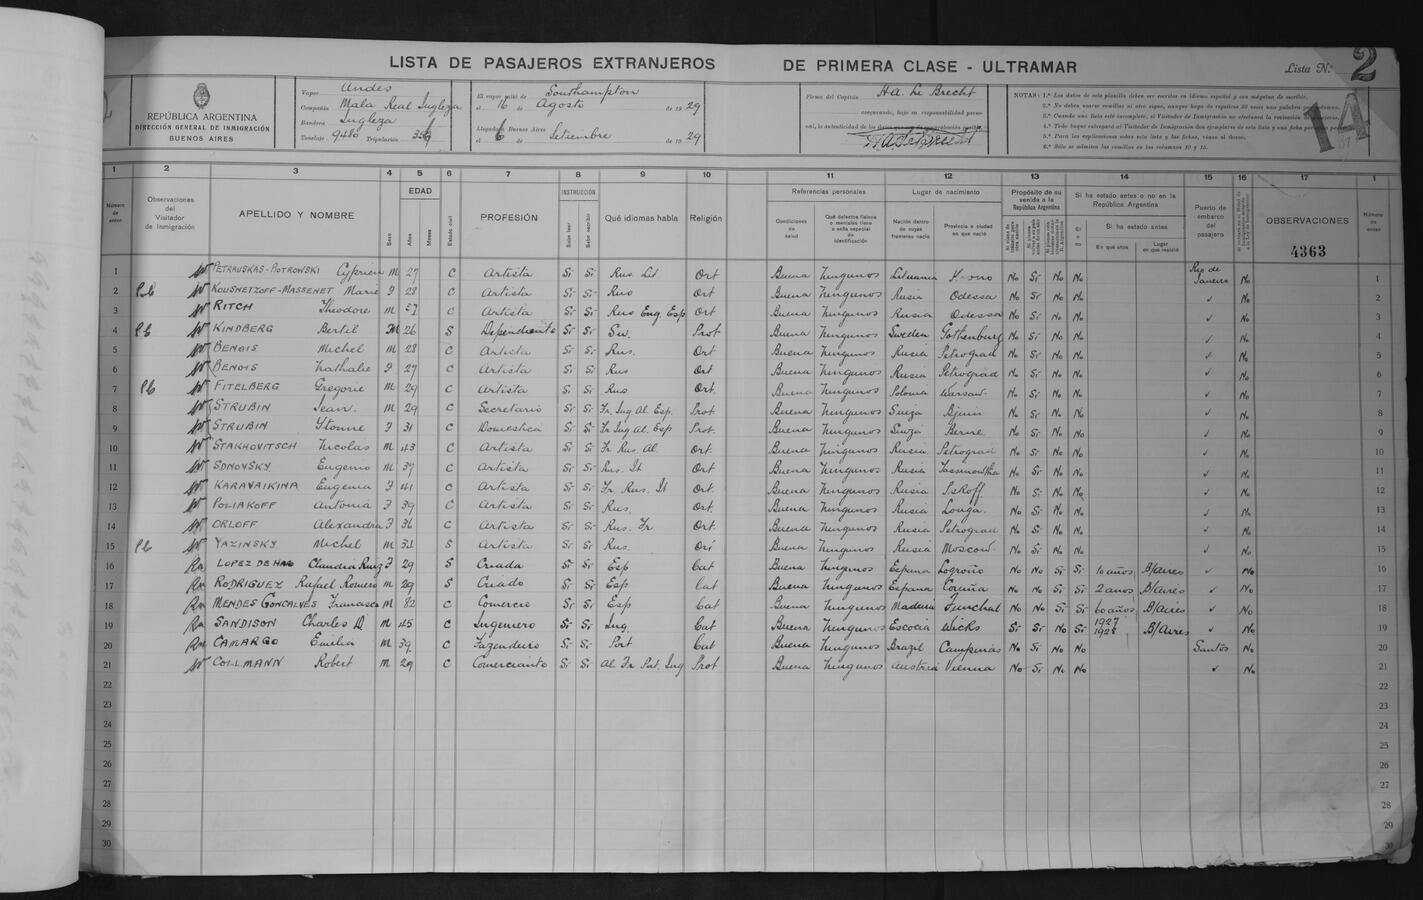 LISTA DE PASAJEROS EXTRANJEROS DE PRIMERA CLASE - ULTRAMAR
Lista N.° 2
14
REPÚBLICA ARGENTINA
DIRECCIÓN GENERAL DE INMIGRACIÓN
BUENOS AIRES
Vapor Andes
Compañía Mala Real Ingleza
Bandera Ingleza
Tonelaje 9480 Tripulación
El vapor salió de Southampton
el 16 de Agosto de 1929
Llegado a Buenos Aires
el 6 de Setiembre de 1929
Firma del Capitán H A. Le Brecht
asegurando, bajo su responsabilidad personal, la autenticidad de los datos que
NOTAS: 1.° Los datos de esta planilla deben ser escritos en idioma español y con máquina de escribir.
1 2 3 4 5 6 7 8 9 10 11 12 13 14 15 16 17 1
Número de orden
Observaciones del Visitador de Inmigración
APELLIDO Y NOMBRE
Sexo
EDAD
Años
Meses
Estado civil
PROFESIÓN
INSTRUCCIÓN
Sabe leer
Sabe escribir
Qué idiomas habla
Religión
Referencias personales
Condiciones de salud
Qué defectos físicos o mentales tiene o seña especial de identificación
Lugar de nacimiento
Nación dentro de cuyas fronteras nació
Provincia o ciudad en que nació
Propósito de su venida a la República Argentina
Si ha estado antes o no en la República Argentina
Si ha estado antes
En qué años
Lugar en que residió
Puerto de embarco del pasajero
OBSERVACIONES
4363
Número de orden
1 PETRAUSKAS-PIOTROWSKI Cyprien M 27 C Artista Si Si Rus. Lit Ort Buena Ningunos Lituania No Si No No Rio de Janeiro No 1
2 KOUSNETZOFF-MASSENET Marie F 28 C Artista Si Si Rus Ort Buena Ningunos Rusia Odessa No Si No No ✓ No 2
3 RITCH Theodore M 37 C Artista Si Si Rus Eng Esp Ort Buena Ningunos Rusia Odessa No Si No No ✓ No 3
4 KINDBERG Bertil M 26 S Dependiente Si Si Su. Prot Buena Ningunos Sweden Gothenburg No Si No No ✓ No 4
5 BENOIS Michel M 28 C Artista Si Si Rus. Ort Buena Ningunos Rusia Petrograd No Si No No ✓ No 5
6 BENOIS Nathalie F 27 C Artista Si Si Rus Ort Buena Ningunos Rusia Petrograd No Si No No ✓ No 6
7 FITELBERG Gregorie M 29 C Artista Si Si Rus Ort. Buena Ningunos Polonia Warsaw No Si No No ✓ No 7
8 STRUBIN Jean. M 29 C Secretario Si Si Fr. Ing Al Esp. Prot Buena Ningunos Suiza No Si No No ✓ No 8
9 STRUBIN Yvonne F 31 C Domestica Si Si Fr Ing Al. Esp Prot. Buena Ningunos Suiza Berne No Si No No ✓ No 9
10 STAKHOVITSCH Nicolas M 43 C Artista Si Si Fr Rus. Al. Ort. Buena Ningunos Rusia Petrograd No Si No No ✓ No 10
11 SDNOVSKY Eugenio M 37 C Artista Si Si Rus. It Ort Buena Ningunos Rusia No Si No No ✓ No 11
12 KARAVAIKINA Eugenia F 41 C Artista Si Si Fr. Rus. It Ort. Buena Ningunos Rusia Pskoff No Si No No ✓ No 12
13 POLIAKOFF Antonia F 39 C Artista Si Si Rus. Ort. Buena Ningunos Rusia Louga. No Si No No ✓ No 13
14 ORLOFF Alexandra F 36 C Artista Si Si Rus. Fr Ort. Buena Ningunos Rusia Petrograd No Si No No ✓ No 14
15 YAZINSKY Michel M 34 S Artista Si Si Rus. Ort Buena Ningunos Rusia Moscow. No Si No No ✓ No 15
16 LOPEZ DE HARO Claudia Ruiz F 29 S Criada Si Si Esp Cat Buena Ningunos Espana Logroño No No Si Si 10 años B/Aires ✓ No 16
17 RODRIGUEZ Rafael Romero M 29 S Criado Si Si Esp Cat Buena Ningunos Espana Coruña No No Si Si 2 anos B/Aires ✓ No 17
18 MENDES GONCALVES Francisco M 82 C Comercio Si Si Esp Cat Buena Ningunos Madeira Funchal No No Si Si 60 años B/Aires ✓ No 18
19 SANDISON Charles D. M 45 C Ingeniero Si Si Ing. Cat Buena Ningunos Escocia Wicks Si Si No Si 1927 1928 B/Aires ✓ No 19
20 CAMARGO Emilia M 39 C Fazendeiro Si Si Port Cat Buena Ningunos Brazil Campinas No Si No No Santos No 20
21 COLLMANN Robert M 29 C Comerciante Si Si Al Fr Port. Ing Prot Buena Ningunos Austria Vienna No Si No No ✓ No 21
22 22
23 23
24 24
25 25
26 26
27 27
28 28
29 29
30 30